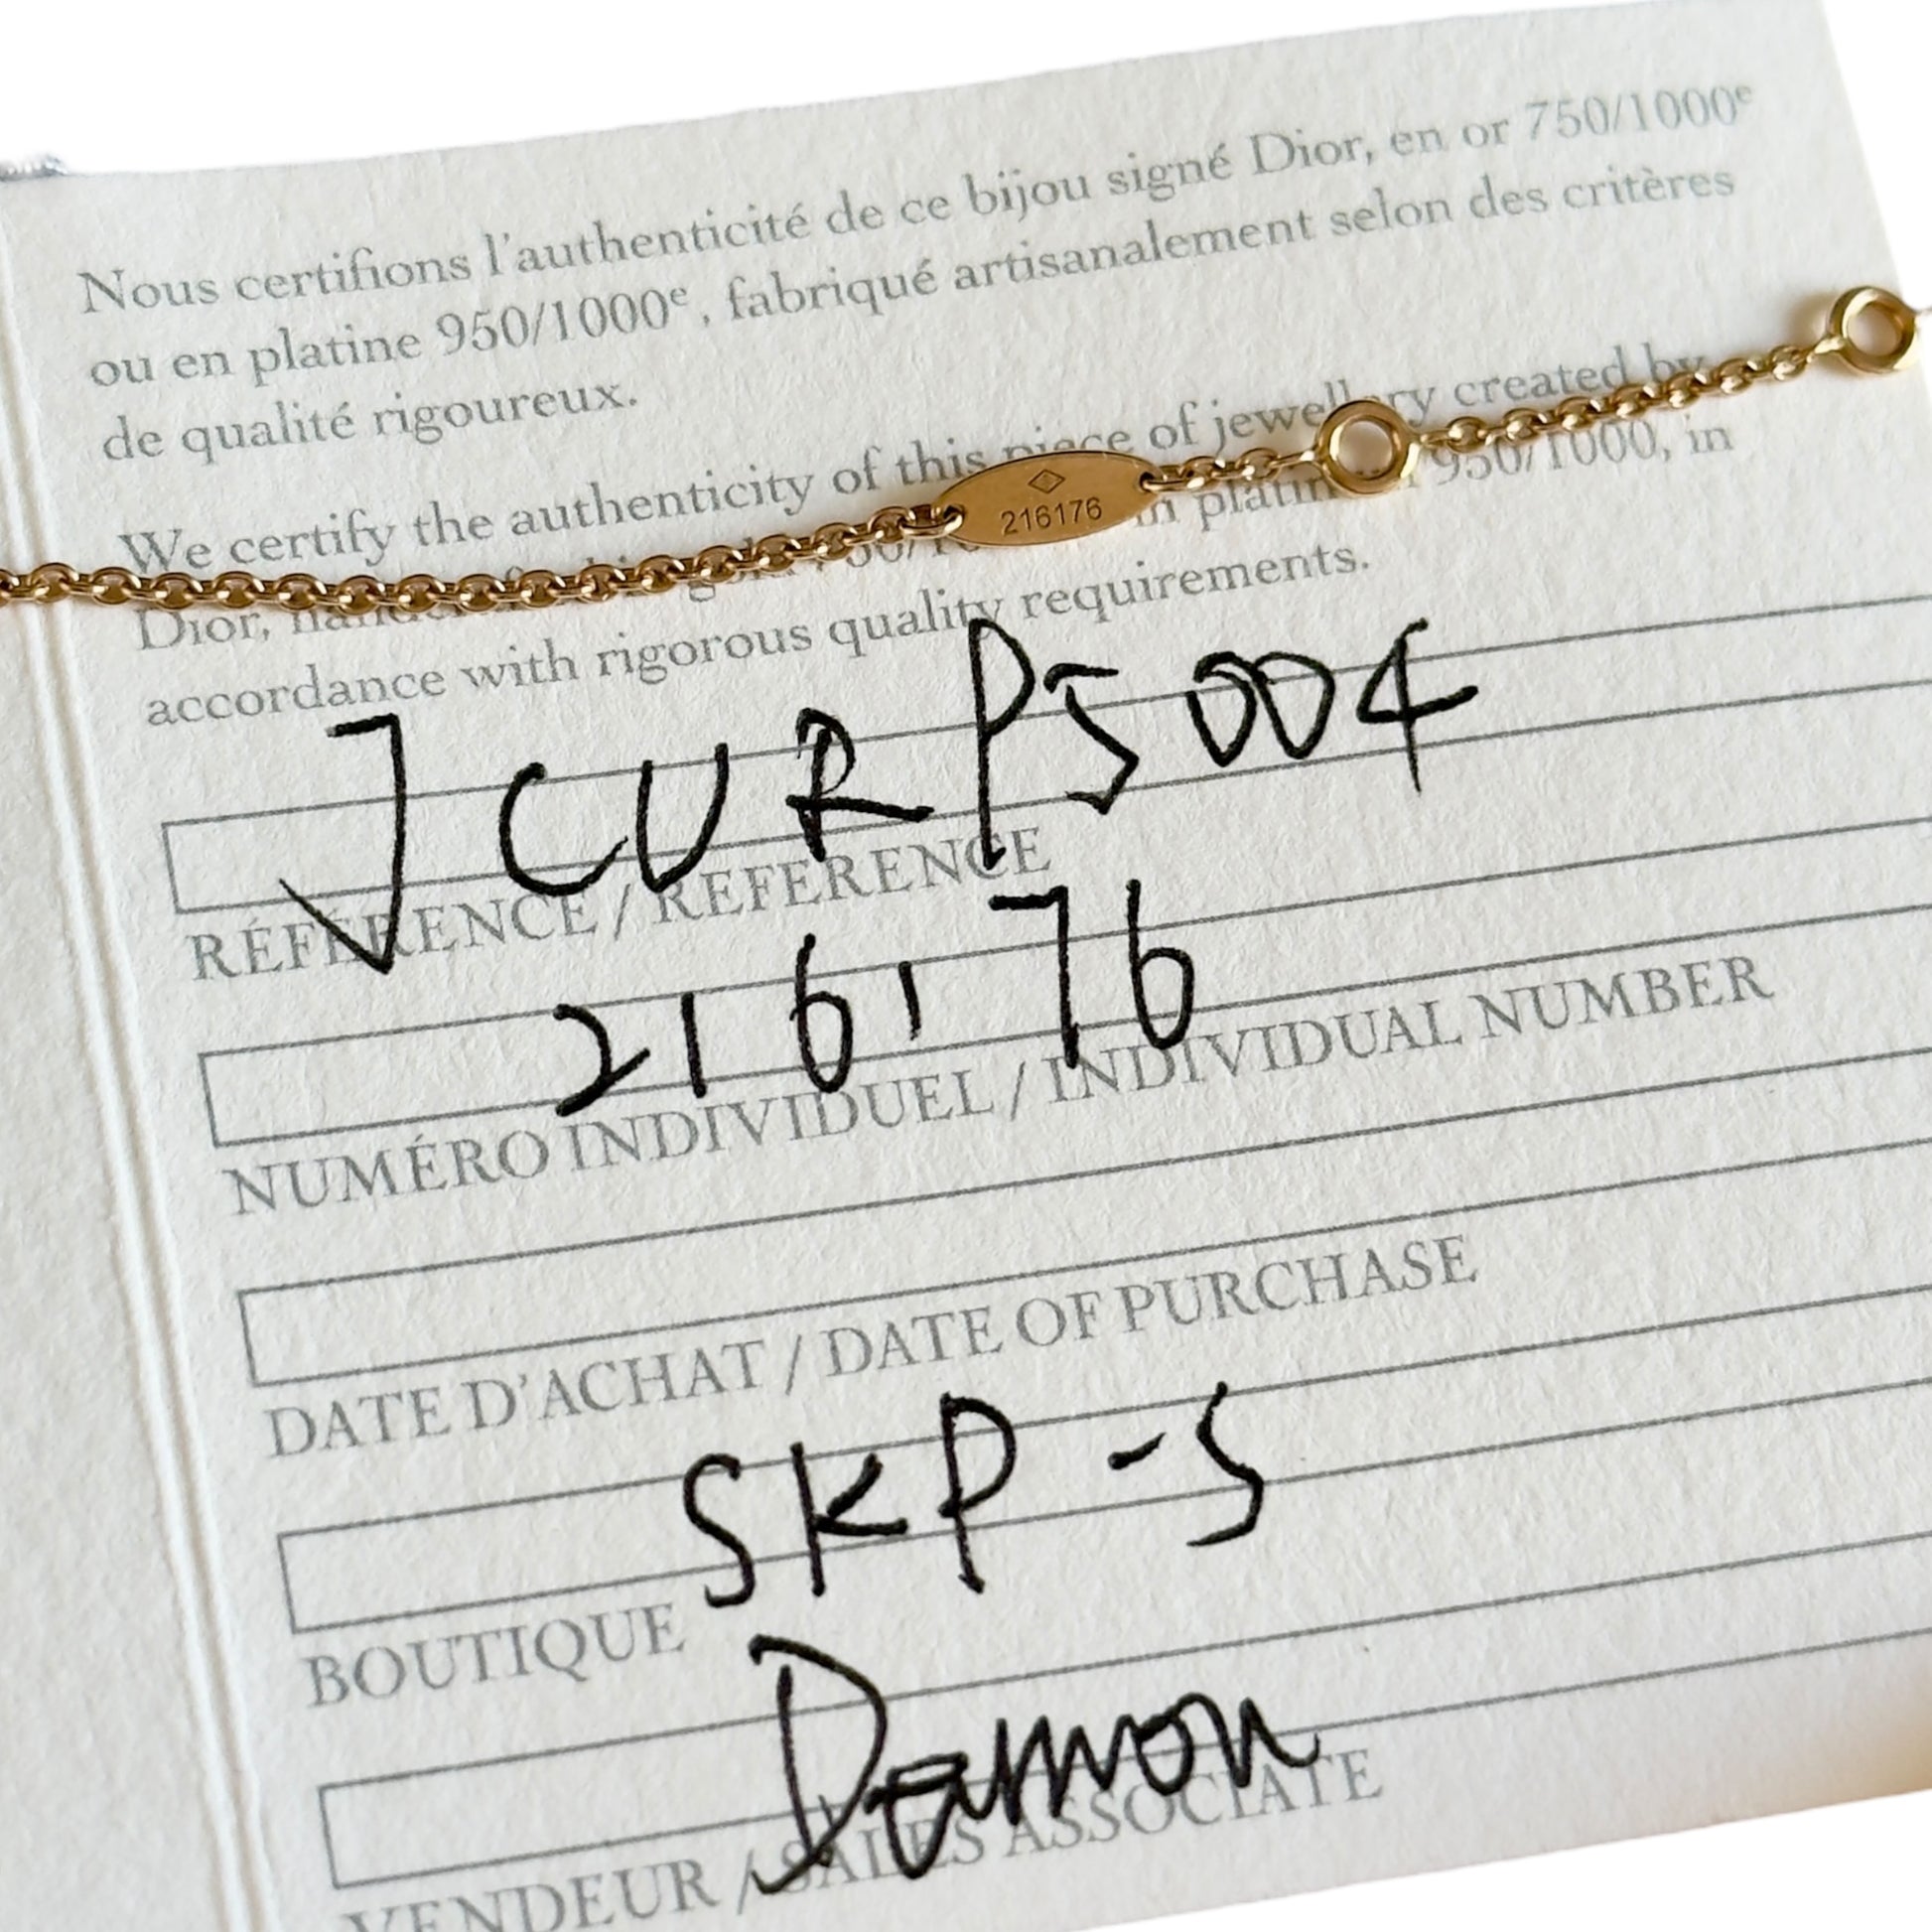 Nous certifions l'authenticité de ce bijou signé Dior, en or 750/1000e
ou en platine 950/1000e, fabriqué artisanalement selon des critères
de qualité rigoureux.
We certify the authenticity of this piece of jewellery created by
Dior, in platin 950/1000, in
accordance with rigorous quality requirements.
216176
JCURP5004
RÉFÉRENCE / REFERENCE
216176
NUMÉRO INDIVIDUEL / INDIVIDUAL NUMBER
DATE D'ACHAT / DATE OF PURCHASE
SKP-S
BOUTIQUE
Damon
VENDEUR / SALES ASSOCIATE